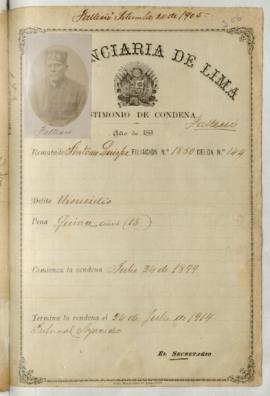 Falleció Setiembre 20 de 1905
PENITENCIARIA DE LIMA
TESTIMONIO DE CONDENA
Año de 189
Falleció
Falleció
Rematado Quispe FILIACIÓN N.º 1850 CELDA N.º 144
Delito Homicidio
Pena Quince años (15)
Comienza la condena Julio 24 de 1899
Termina la condena el 24 de Julio de 1914
Tribunal
EL SECRETARIO